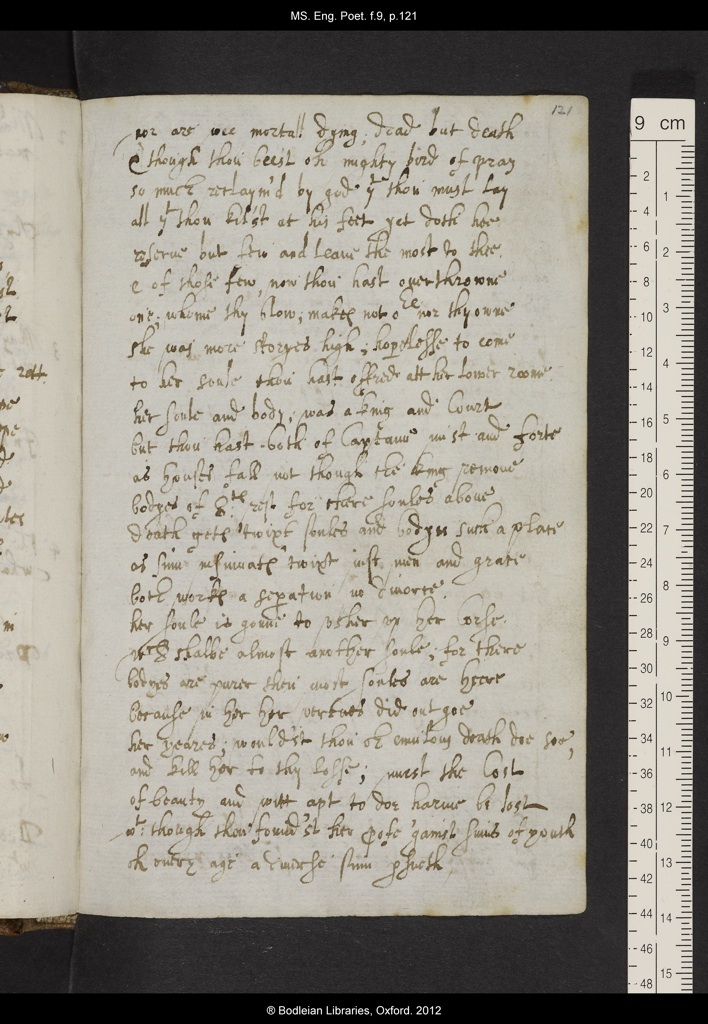 MS. Eng. Poet. f.9, p.121
121
nor are wee mortall dying, dead but death
& though thou beest oh mighty bird of pray
so much reclaym'd by god yt thou must lay
all yt thou kil'st at his feet yet doth hee
reserve but few and leave the most to thee
& of those few, now thou hast overthrowne
one; whome thy blow, makes not nor thy owne
she was more storyes high; hopelesse to come
to her soule thou hast offred att her lower roome
her soule and body; was a king and Court
but thou hast both of Captaine mist and forte
as houses fall not though the king remove
bodyes of Sts rest for there soules above
death gets twixt soules and bodyes such a place
as sinn insinuats twixt iust men and grace
both works a separation no divorce.
her soule is gonne to vsher vp her Corse.
wch shalbe almost another soule; for there
bodyes are purer then most soules are heere
because in her her vertues did out goe
her yeares; wouldst thou oh emulous death doe soe,
and kill her to thy losse; must the Cost
of beauty and witt apt to doe harme be lost
wt: though thou found'st her profe gainst sinns of youth
oh every age a diverse sinn psueth
9 cm
2
4
6
8
10
12
14
16
18
20
22
24
26
28
30
32
34
36
38
40
42
44
46
48
1
2
3
4
5
6
7
8
9
10
11
12
13
14
15
® Bodleian Libraries, Oxford. 2012